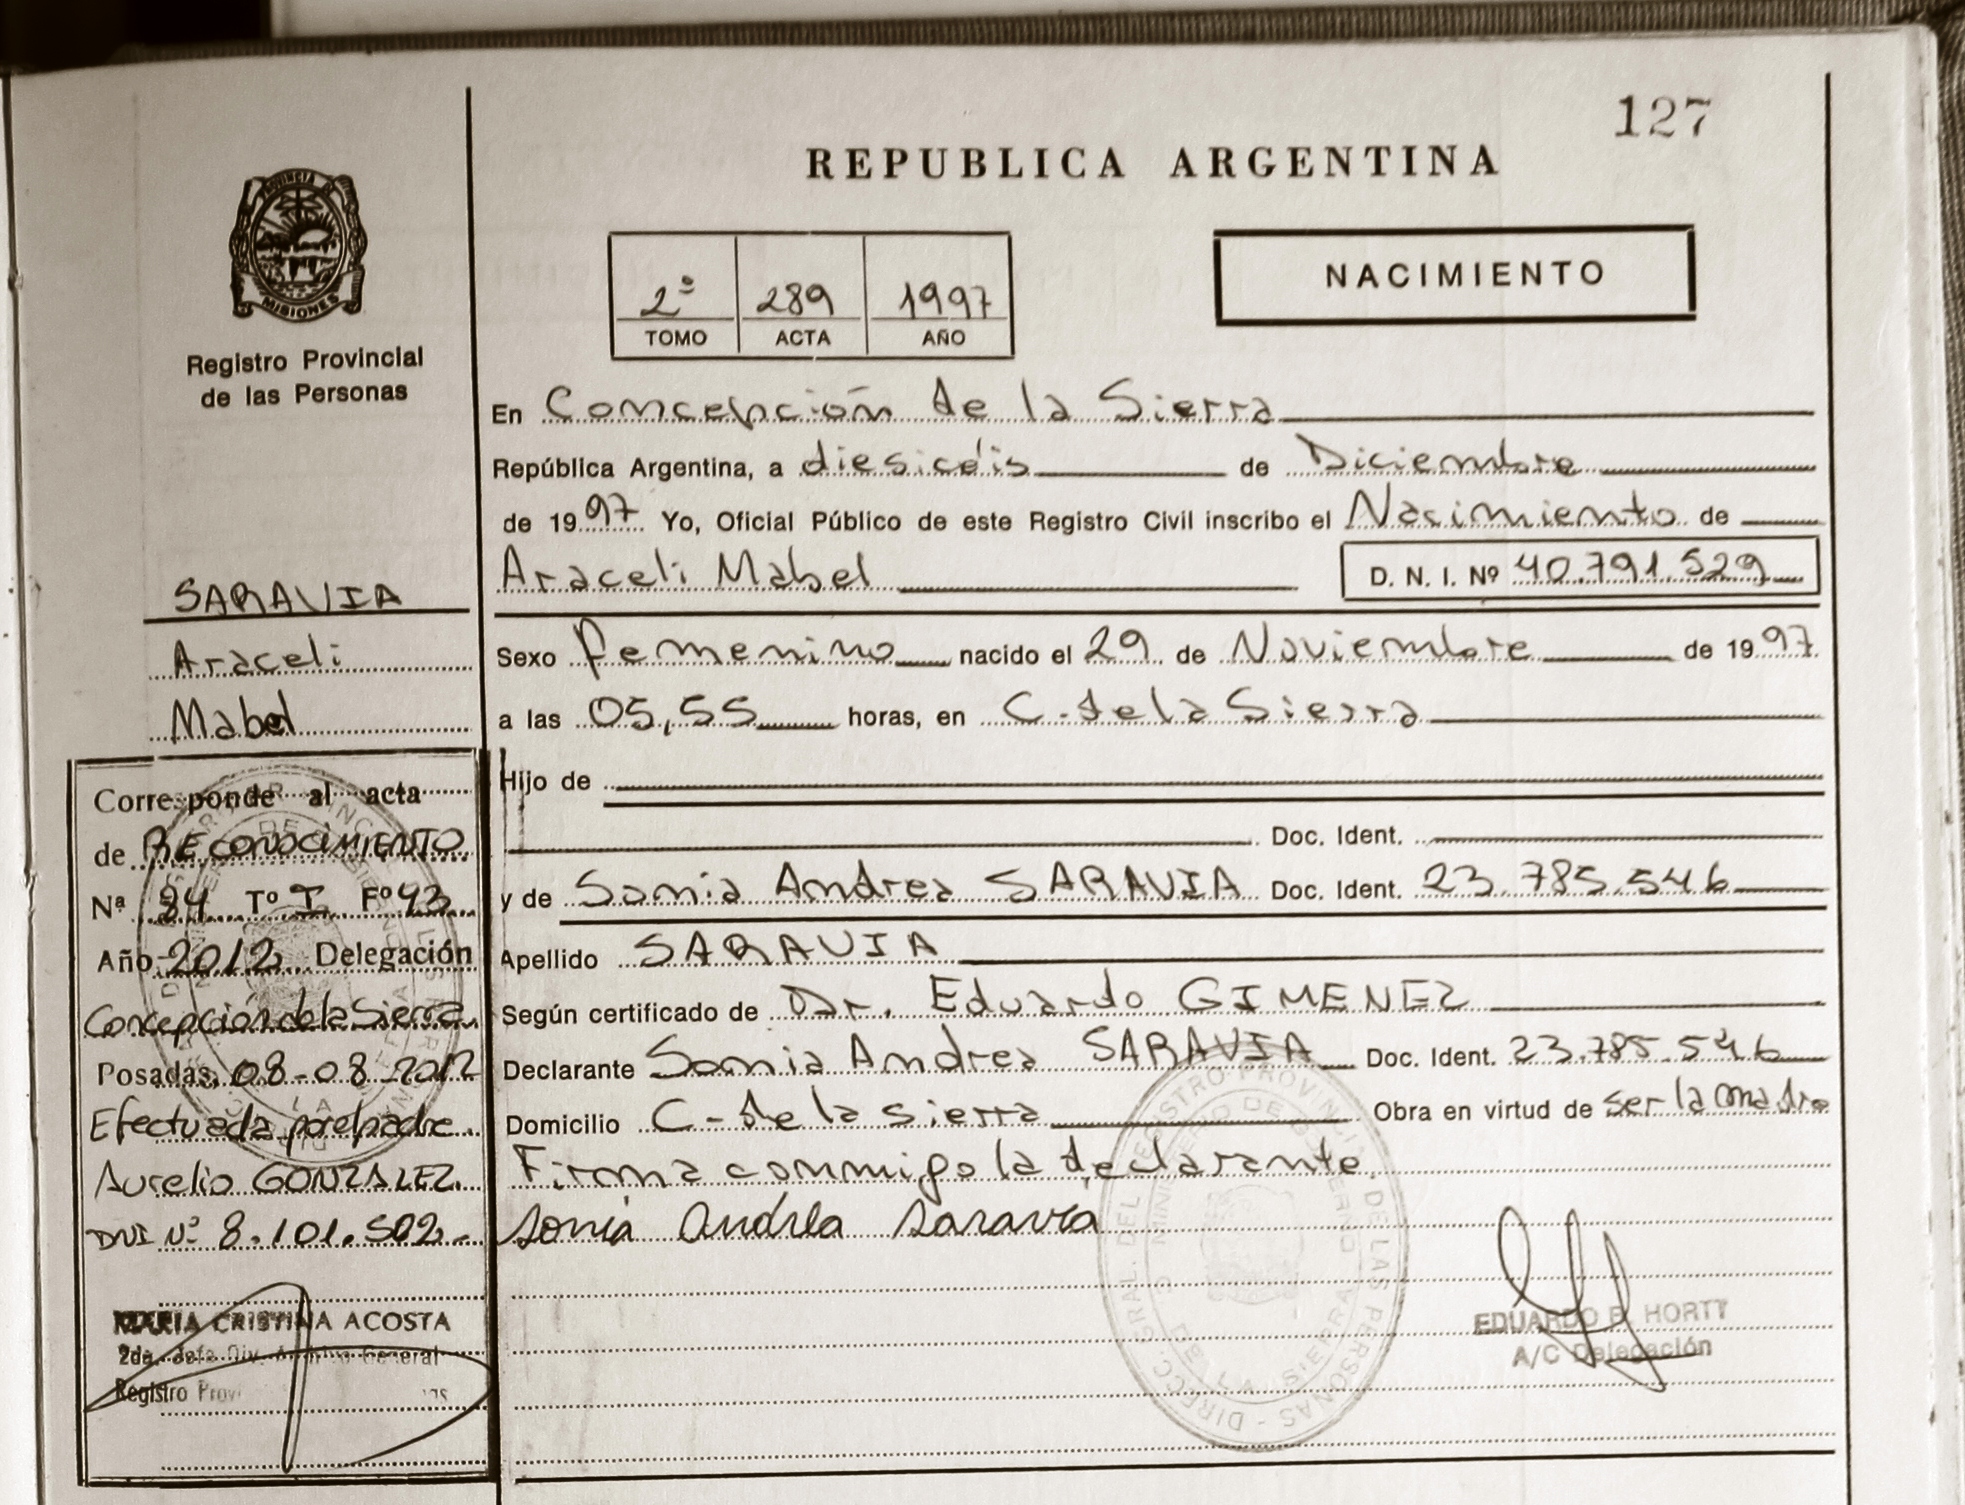 127
REPUBLICA ARGENTINA
PROVINCIA DE
MISIONES
Registro Provincial
de las Personas
2º 289 1997
TOMO ACTA AÑO
NACIMIENTO
En Concepción de la Sierra
República Argentina, a diesiséis de Diciembre
de 1997 Yo, Oficial Público de este Registro Civil inscribo el Nacimiento de
Araceli Mabel D. N. I. Nº 40.791.529
Sexo Femenino nacido el 29 de Noviembre de 1997
a las 05,55 horas, en C. de la Sierra
Hijo de
Doc. Ident.
y de Sonia Andrea SARAVIA Doc. Ident. 23.785.546
Apellido SARAVIA
Según certificado de Dr. Eduardo GIMENEZ
Declarante Sonia Andrea SARAVIA Doc. Ident. 23.785.546
Domicilio C- de la sierra Obra en virtud de ser la madre
Firma conmigo la declarante.
Sonia Andrea Saravia
EDUARDO HORTT
A/C Delegación
SARAVIA
Araceli
Mabel
Corresponde al acta
de RECONOCIMIENTO
Nª 84 Tº I Fº 43
Año 2012 Delegación
Concepción de la Sierra
Posadas, 08-08-2012
Efectuada por el padre
Aurelio GONZALEZ.
DNI Nº 8.101.502.-
MARIA CRISTINA ACOSTA
2da. Jefa Div. General
Registro